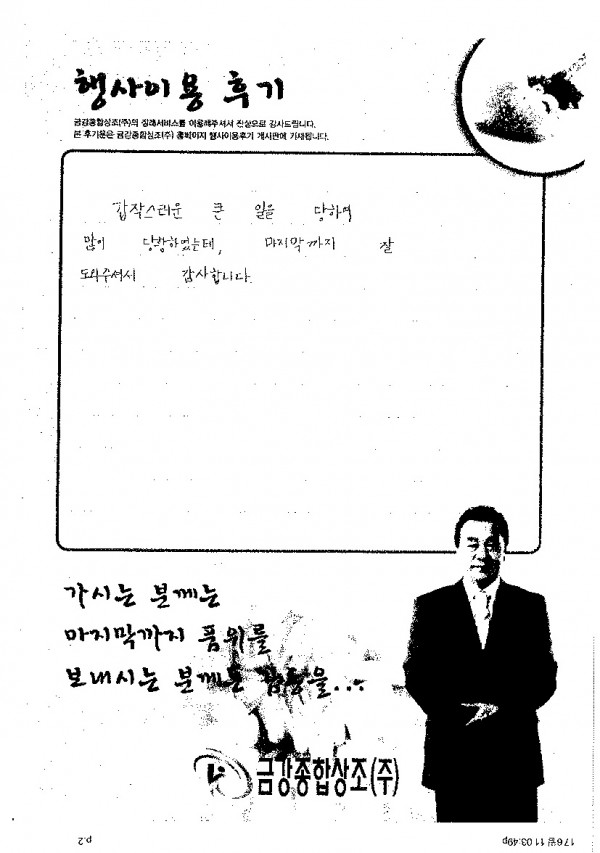 행사이용 후기
금강종합상조(주)의 장례서비스를 이용해주셔서 진심으로 감사드립니다.
본 후기문은 금강종합상조(주) 홈페이지 행사이용후기 게시판에 기재됩니다.
갑작스러운 큰 일을 당하여
많이 당황하였는데, 마지막까지 잘
도와주셔서 감사합니다.
가시는 분께는
마지막까지 품위를
보내시는 분께는 감동을...
금강종합상조(주)
p.2
17 6월 11 03:49p